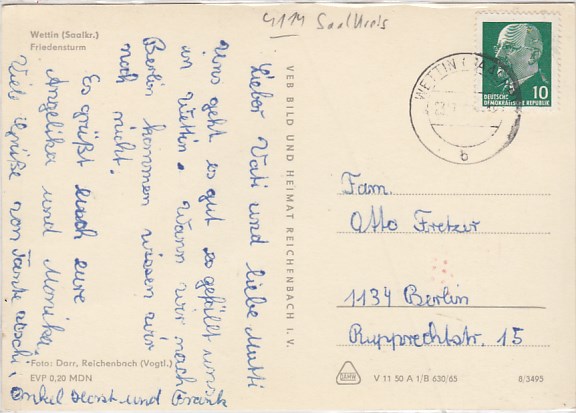 4114 Saalkreis
Wettin (Saalkr.)
Friedensturm
Lieber Vati und liebe Mutti
Uns geht es gut es gefällt uns
in Wettin. Wann wir nach
Berlin kommen wissen wir
noch nicht.
Es grüßt euch eure
Angelika und Monika.
Viele Grüße von Tante
Onkel Horst und Frank
VEB BILD UND HEIMAT REICHENBACH I. V.
WETTIN
b
10
DEUTSCHE
DEMOKRATISCHE REPUBLIK
Fam.
Otto Fretzer
1134 Berlin
Rupprechtstr. 15
Foto: Darr, Reichenbach (Vogtl.)
EVP 0,20 MDN
V 11 50 A 1/B 630/65
8/3495